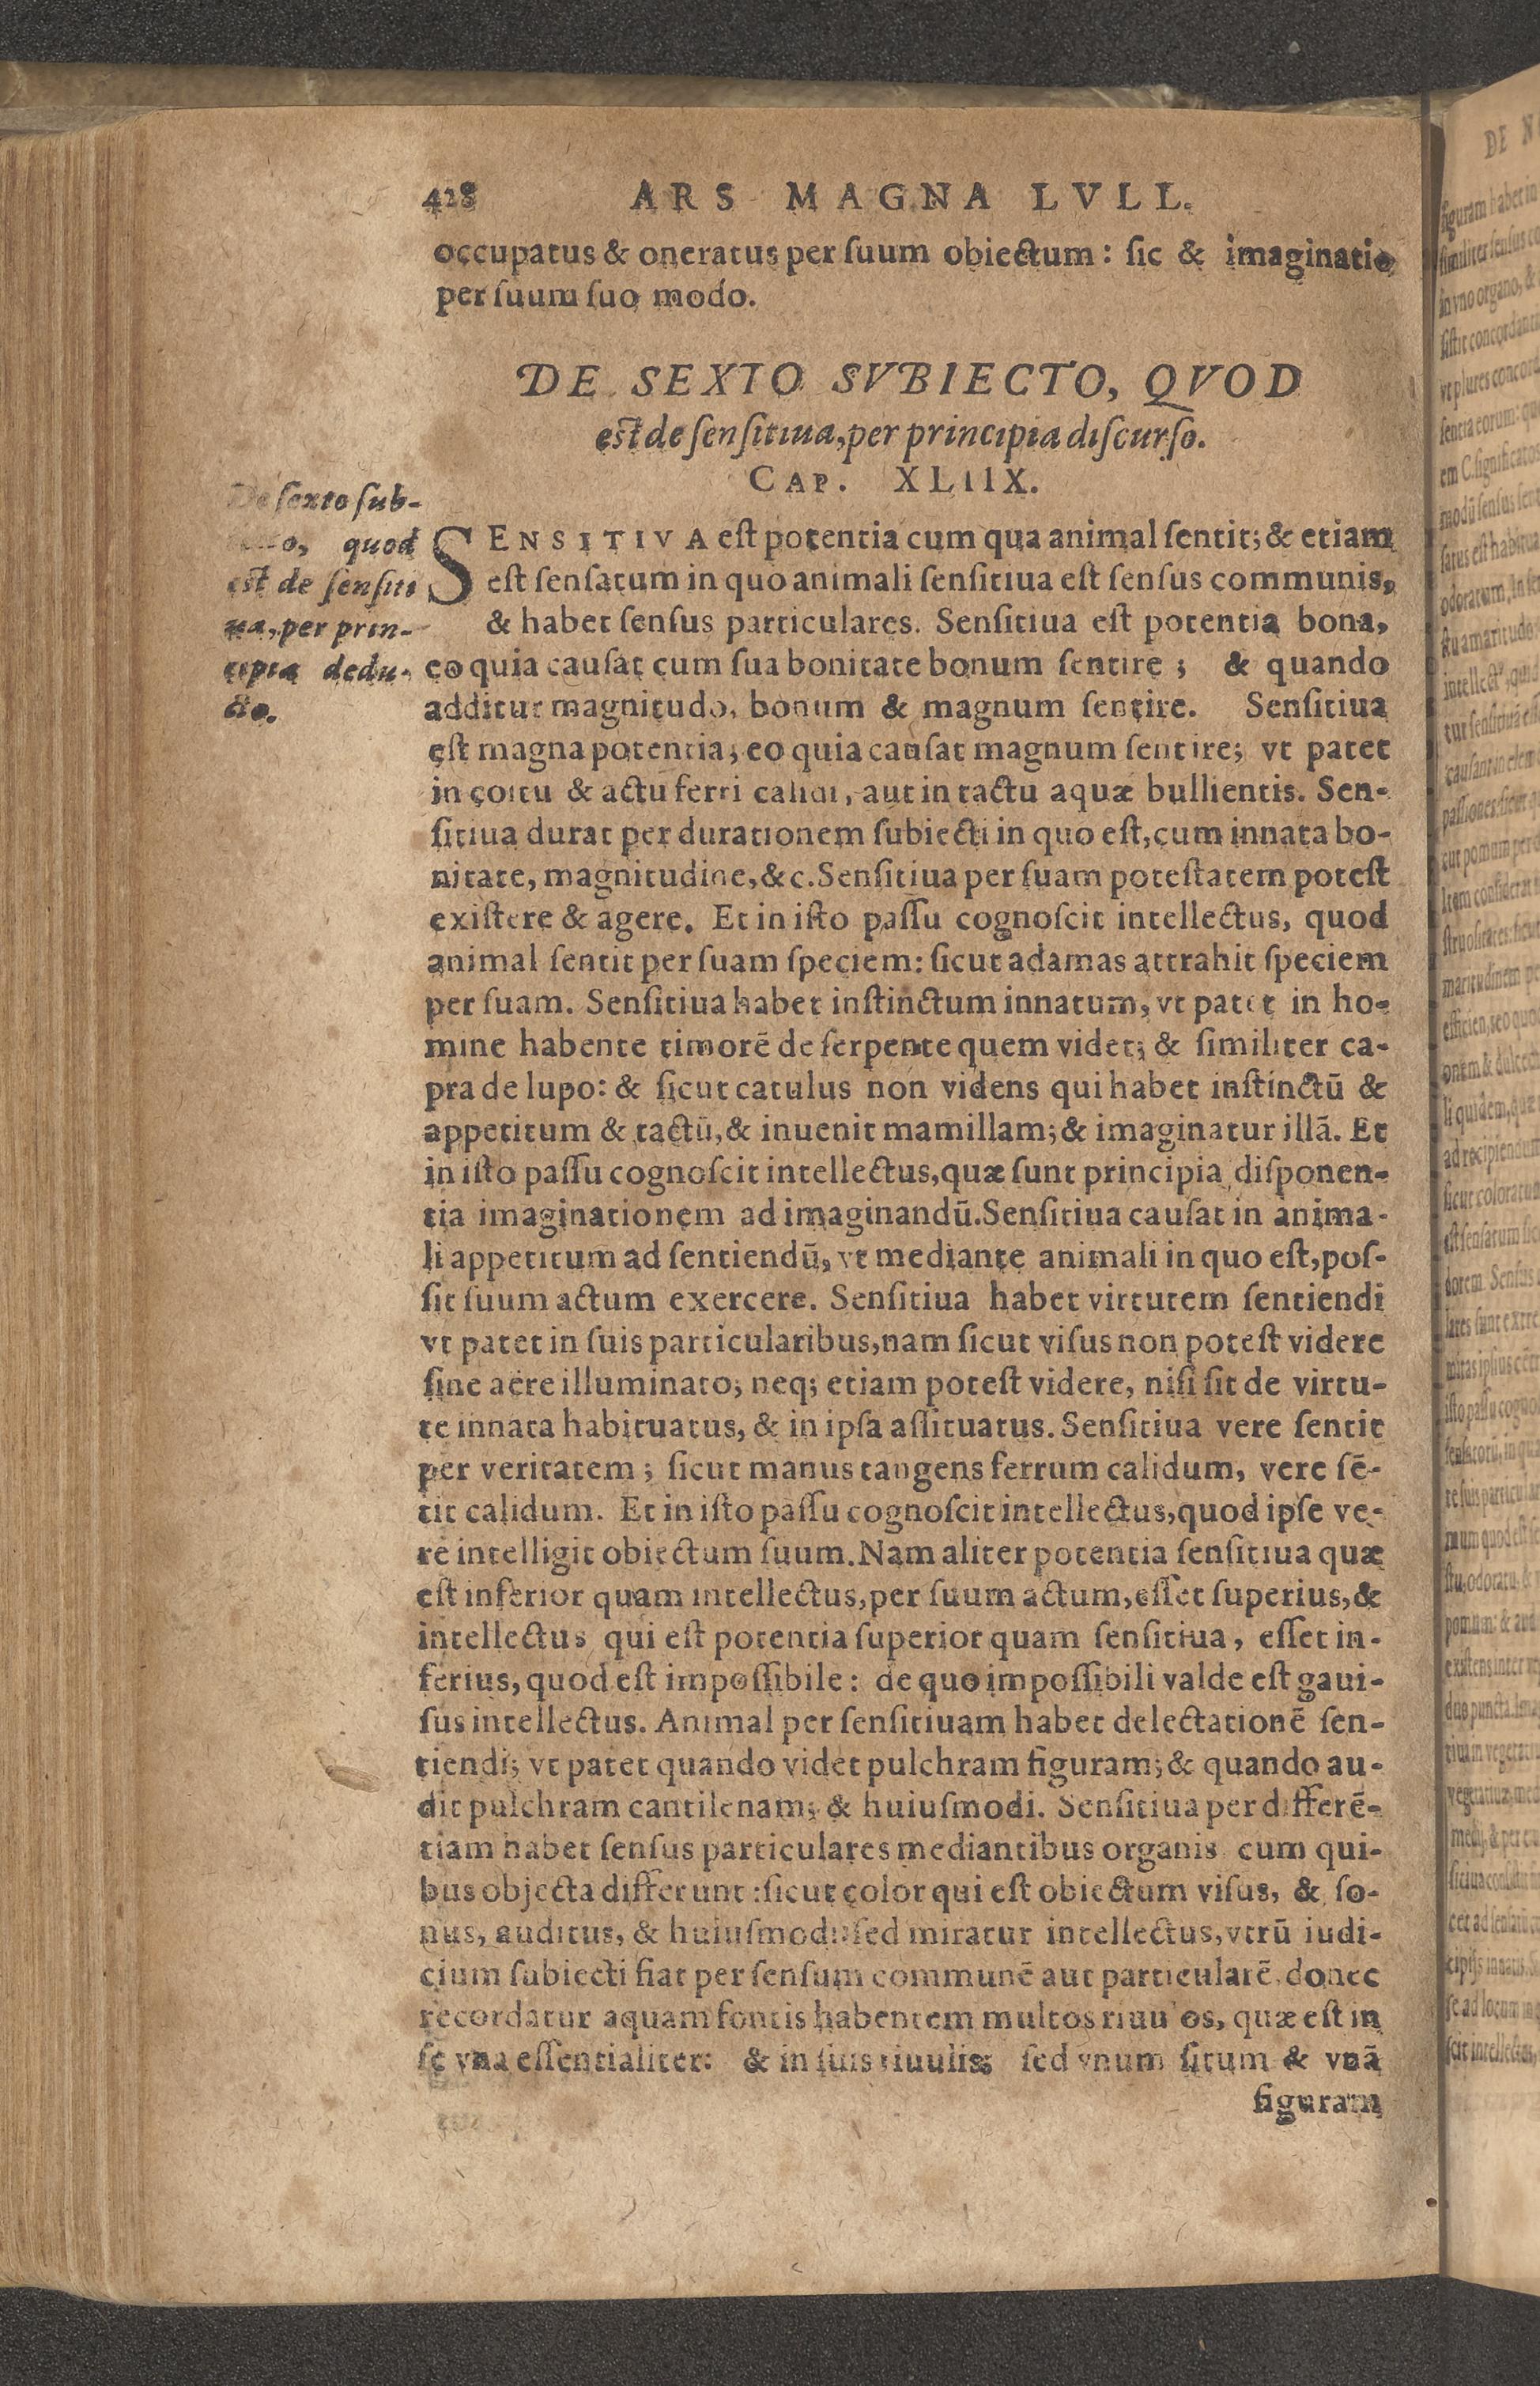 428 ARS MAGNA LVLL.
occupatus & oneratus per ſuum obiectum: ſic & imaginatio
per ſuum ſuo modo.
DE SEXTO SVBIECTO, QVOD
eſt de ſenſitiua, per principia diſcurſo.
CAP. XLIIX.
De ſexto ſub-
quod
eſt de ſenſiti
ua, per prin-
cipia dedu-
cto.
SENSITIVA eſt potentia cum qua animal ſentit; & etiam
eſt ſenſatum in quo animali ſenſitiua eſt ſenſus communis,
& habet ſenſus particulares. Senſitiua eſt potentia bona,
eo quia cauſat cum ſua bonitate bonum ſentire; & quando
additur magnitudo, bonum & magnum ſentire. Senſitiua
eſt magna potentia; eo quia cauſat magnum ſentire; vt patet
in coitu & actu ferri calidi, aut in tactu aquæ bullientis. Sen-
ſitiua durat per durationem ſubiecti in quo eſt, cum innata bo-
nitate, magnitudine, &c. Senſitiua per ſuam poteſtatem poteſt
exiſtere & agere. Et in iſto paſſu cognoſcit intellectus, quod
animal ſentit per ſuam ſpeciem: ſicut adamas attrahit ſpeciem
per ſuam. Senſitiua habet inſtinctum innatum, vt patet in ho-
mine habente timorē de ſerpente quem videt; & ſimiliter ca-
pra de lupo: & ſicut catulus non videns qui habet inſtinctū &
appetitum & tactū, & inuenit mamillam; & imaginatur illā. Et
in iſto paſſu cognoſcit intellectus, quæ ſunt principia diſponen-
tia imaginationem ad imaginandū. Senſitiua cauſat in anima-
li appetitum ad ſentiendū, vt mediante animali in quo eſt, poſ-
ſit ſuum actum exercere. Senſitiua habet virtutem ſentiendi
vt patet in ſuis particularibus, nam ſicut viſus non poteſt videre
ſine aëre illuminato; neq; etiam poteſt videre, niſi ſit de virtu-
te innata habituatus, & in ipſa aſſituatus. Senſitiua vere ſentit
per veritatem; ſicut manus tangens ferrum calidum, vere ſē-
tit calidum. Et in iſto paſſu cognoſcit intellectus, quod ipſe ve-
rè intelligit obiectum ſuum. Nam aliter potentia ſenſitiua quæ
eſt inferior quam intellectus, per ſuum actum, eſſet ſuperius, &
intellectus qui eſt potentia ſuperior quam ſenſitiua, eſſet in-
ferius, quod eſt impoſſibile: de quo impoſſibili valde eſt gaui-
ſus intellectus. Animal per ſenſitiuam habet delectationē ſen-
tiendi; vt patet quando videt pulchram figuram; & quando au-
dit pulchram cantilenam; & huiuſmodi. Senſitiua per differē-
tiam habet ſenſus particulares mediantibus organis cum qui-
bus objecta differunt: ſicut color qui eſt obiectum viſus, & ſo-
nus, auditus, & huiuſmodi: ſed miratur intellectus, vtrū iudi-
cium ſubiecti fiat per ſenſum communē aut particularē, donec
recordatur aquam fontis habentem multos riuulos, quæ eſt in
ſe vna eſſentialiter: & in ſuis riuulis; ſed vnum ſitum & vnā
figuram